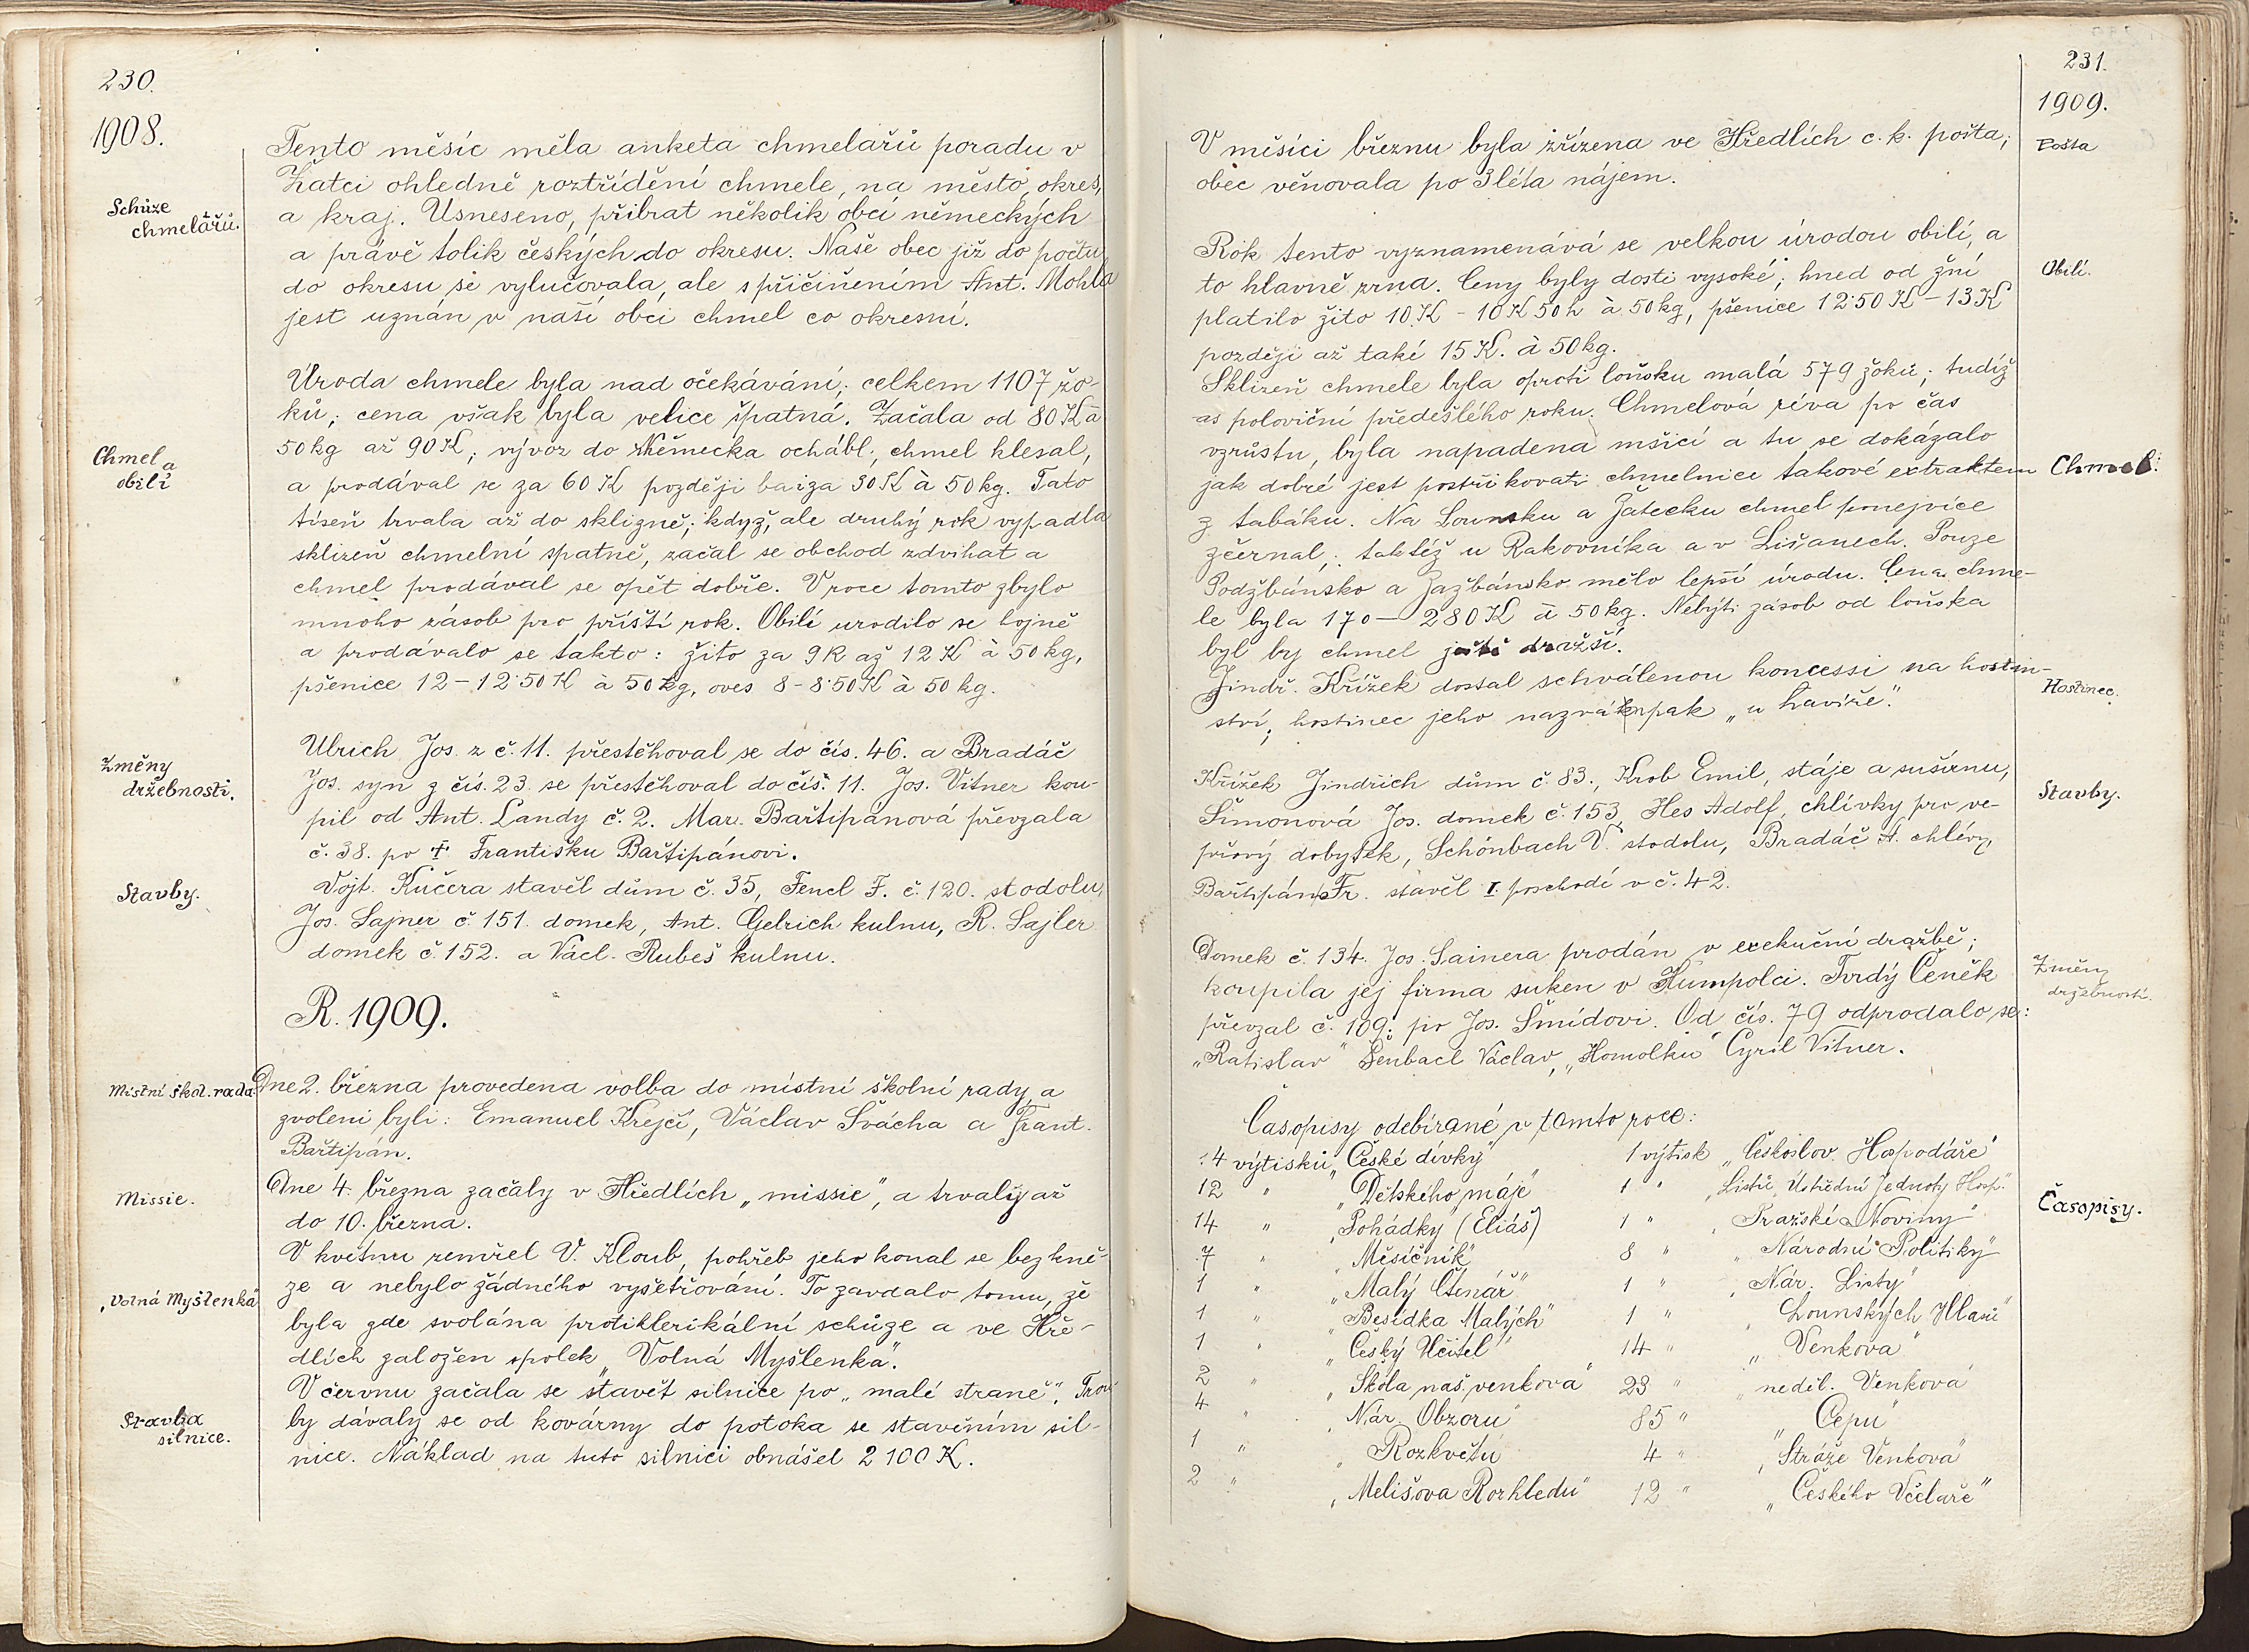 230.
1908.
Tento měsíc měla anketa chmelařů poradu v
Žatci ohledně roztřídění chmele, na město, okres,
Schůze
chmelářů.
a kraj. Usneseno, přibrat několik obcí německých
a právě tolik českých do okresu. Naše obec již do počtu
do okresu se vylučovala, ale s přičiněním Ant. Mohla
jest uznán v naší obci chmel co okresní.
Úroda chmele byla nad očekávání; celkem 1107 žo-
ků; cena však byla velice špatná. Začala od 80 K à
Chmel a
obilí
50 kg až 90 K; vývoz do Německa ochábl, chmel klesal,
a prodával se za 60 K později ba i za 30 K à 50 kg. Tato
tíseň trvala až do sklizně; když, ale druhý rok vypadla
sklizeň chmelní špatně, začal se obchod zdvihat a
chmel prodával se opět dobře. V roce tomto zbylo
mnoho zásob pro příští rok. Obilí urodilo se hojně
a prodávalo se takto: žito za 9 K až 12 K à 50 kg,
pšenice 12 – 12·50 K à 50 kg, oves 8 – 8·50 K à 50 kg.
Změny
držebnosti.
Ulrich Jos. z č. 11. přestěhoval se do čís. 46. a Bradáč
Jos. syn z čís. 23. se přestěhoval do čís. 11. Jos. Vitner kou-
pil od Ant. Landy č. 2. Mar. Bařtipánová převzala
č. 38. po † Františku Bařtipánovi.
Stavby.
Vojt. Kučera stavěl dům č. 35, Fencl F. č. 120. stodolu,
Jos. Sajner č. 151. domek, Ant. Gelrich kulnu, R. Sajler
domek č. 152. a Václ. Rubeš kulnu.
R. 1909.
Místní škol. rada.
Dne 2. března provedena volba do místní školní rady, a
zvoleni byli: Emanuel Krejčí, Václav Švácha a Frant.
Bařtipán.
Missie.
Dne 4. března začaly v Hředlích „missie", a trvaly až
do 10. března.
V květnu zemřel V. Kloub, pohřeb jeho konal se bez kně-
„Volná Myšlenka"
ze a nebylo žádného vyšetřování. To zavdalo tomu, že
byla zde svolána protiklerikální schůze a ve Hře-
dlích založen spolek „Volná Myšlenka".
V červnu začala se stavět silnice po „malé straně". Trou
Stavba
silnice.
by dávaly se od kovárny do potoka se stavěním sil-
nice. Náklad na tuto silnici obnášel 2100 K.
231.
1909.
V měsíci březnu byla zřízena ve Hředlích c. k. pošta;
Pošta
obec věnovala po 3 léta nájem.
Rok tento vyznamenává se velkou úrodou obilí, a
Obilí.
to hlavně zrna. Ceny byly dosti vysoké; hned od žní
platilo žito 10 K – 10 K 50 h à 50 kg, pšenice 12·50 K – 13 K
později až také 15 K. à 50 kg.
Sklizeň chmele byla oproti loňsku malá 579 žoků; tudíž
as poloviční předešlého roku. Chmelová réva po čas
vzrůstu, byla napadena mšicí a tu se dokázalo
jak dobré jest postřikovati chmelnice takové extraktem
Chmel.
z tabáku. Na Lounsku a Žatecku chmel ponejvíce
zčernal; taktéž u Rakovníka a v Lišanech. Pouze
Podžbánsko a Zažbánsko mělo lepší úrodu. Cena chme-
le byla 170 – 280 K à 50 kg. Nebýti zásob od loňska
byl by chmel ještě dražší.
Jindř. Křížek dostal schválenou koncessi na hostin-
Hostinec.
ství; hostinec jeho nazván pak „u havíře".
Křížek Jindřich dům č. 83., Krob Emil, stáje a sušírnu,
Stavby.
Šímonová Jos. domek č. 153, Hes Adolf, chlívky pro ve-
přový dobytek, Schönbach V. stodolu, Bradáč A. chlévy,
Bařtipán Fr. stavěl I. poschodí v č. 42.
Domek č. 134. Jos. Sainera prodán v exekuční dražbě;
Změny
držebnosti.
koupila jej firma suken v Humpolci. Tvrdý Čeněk
převzal č. 109. po Jos. Šmídovi. Od čís. 79 odprodalo se:
„Ratislav" Šenbach Václav, „Homolku" Cyril Vitner.
Časopisy odebírané v tomto roce:
Časopisy.
14 výtisků „České dívky"
12 " „Dětského máje"
14 " „Pohádky" (Eliáš)
7 " „Měsíčník"
1 " „Malý Čtenář"
1 " „Besídka Malých"
1 " „Český Učitel"
2 " „Škola naš. venkova"
4 " „Nár. Obzoru"
1 " „Rozkvětu"
2 " „Melišova Rozhledu"
1 výtisk „Českoslov. Hospodáře"
1 " „Listů Ústřední Jednoty Hosp."
1 " „Pražské Noviny"
8 " „Národní Politiky"
1 " „Nár. Listy"
1 " „Lounských Hlasů"
14 " „Venkova"
23 " „neděl. Venkova"
85 " „Cepu"
4 " „Stráže Venkova"
12 " „Českého Včelaře"